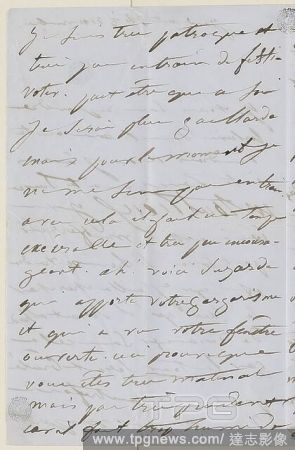 Je suis très patraque et
très peu en train de
voter. peut être que ce soir
Je serai plus gaillarde
mais pour le moment je
ne me sens pas en train
avec cela il fait un temps
exécrable et très peu encoura-
geant. ah! voici Suzarde
qui apporte votre gargarisme
et qui a vu votre fenêtre
ouverte. ceci prouve que
vous êtes très matinal
mais pas très prudent
car il fait très
TPG
www.tpgnews.com / 達志影像